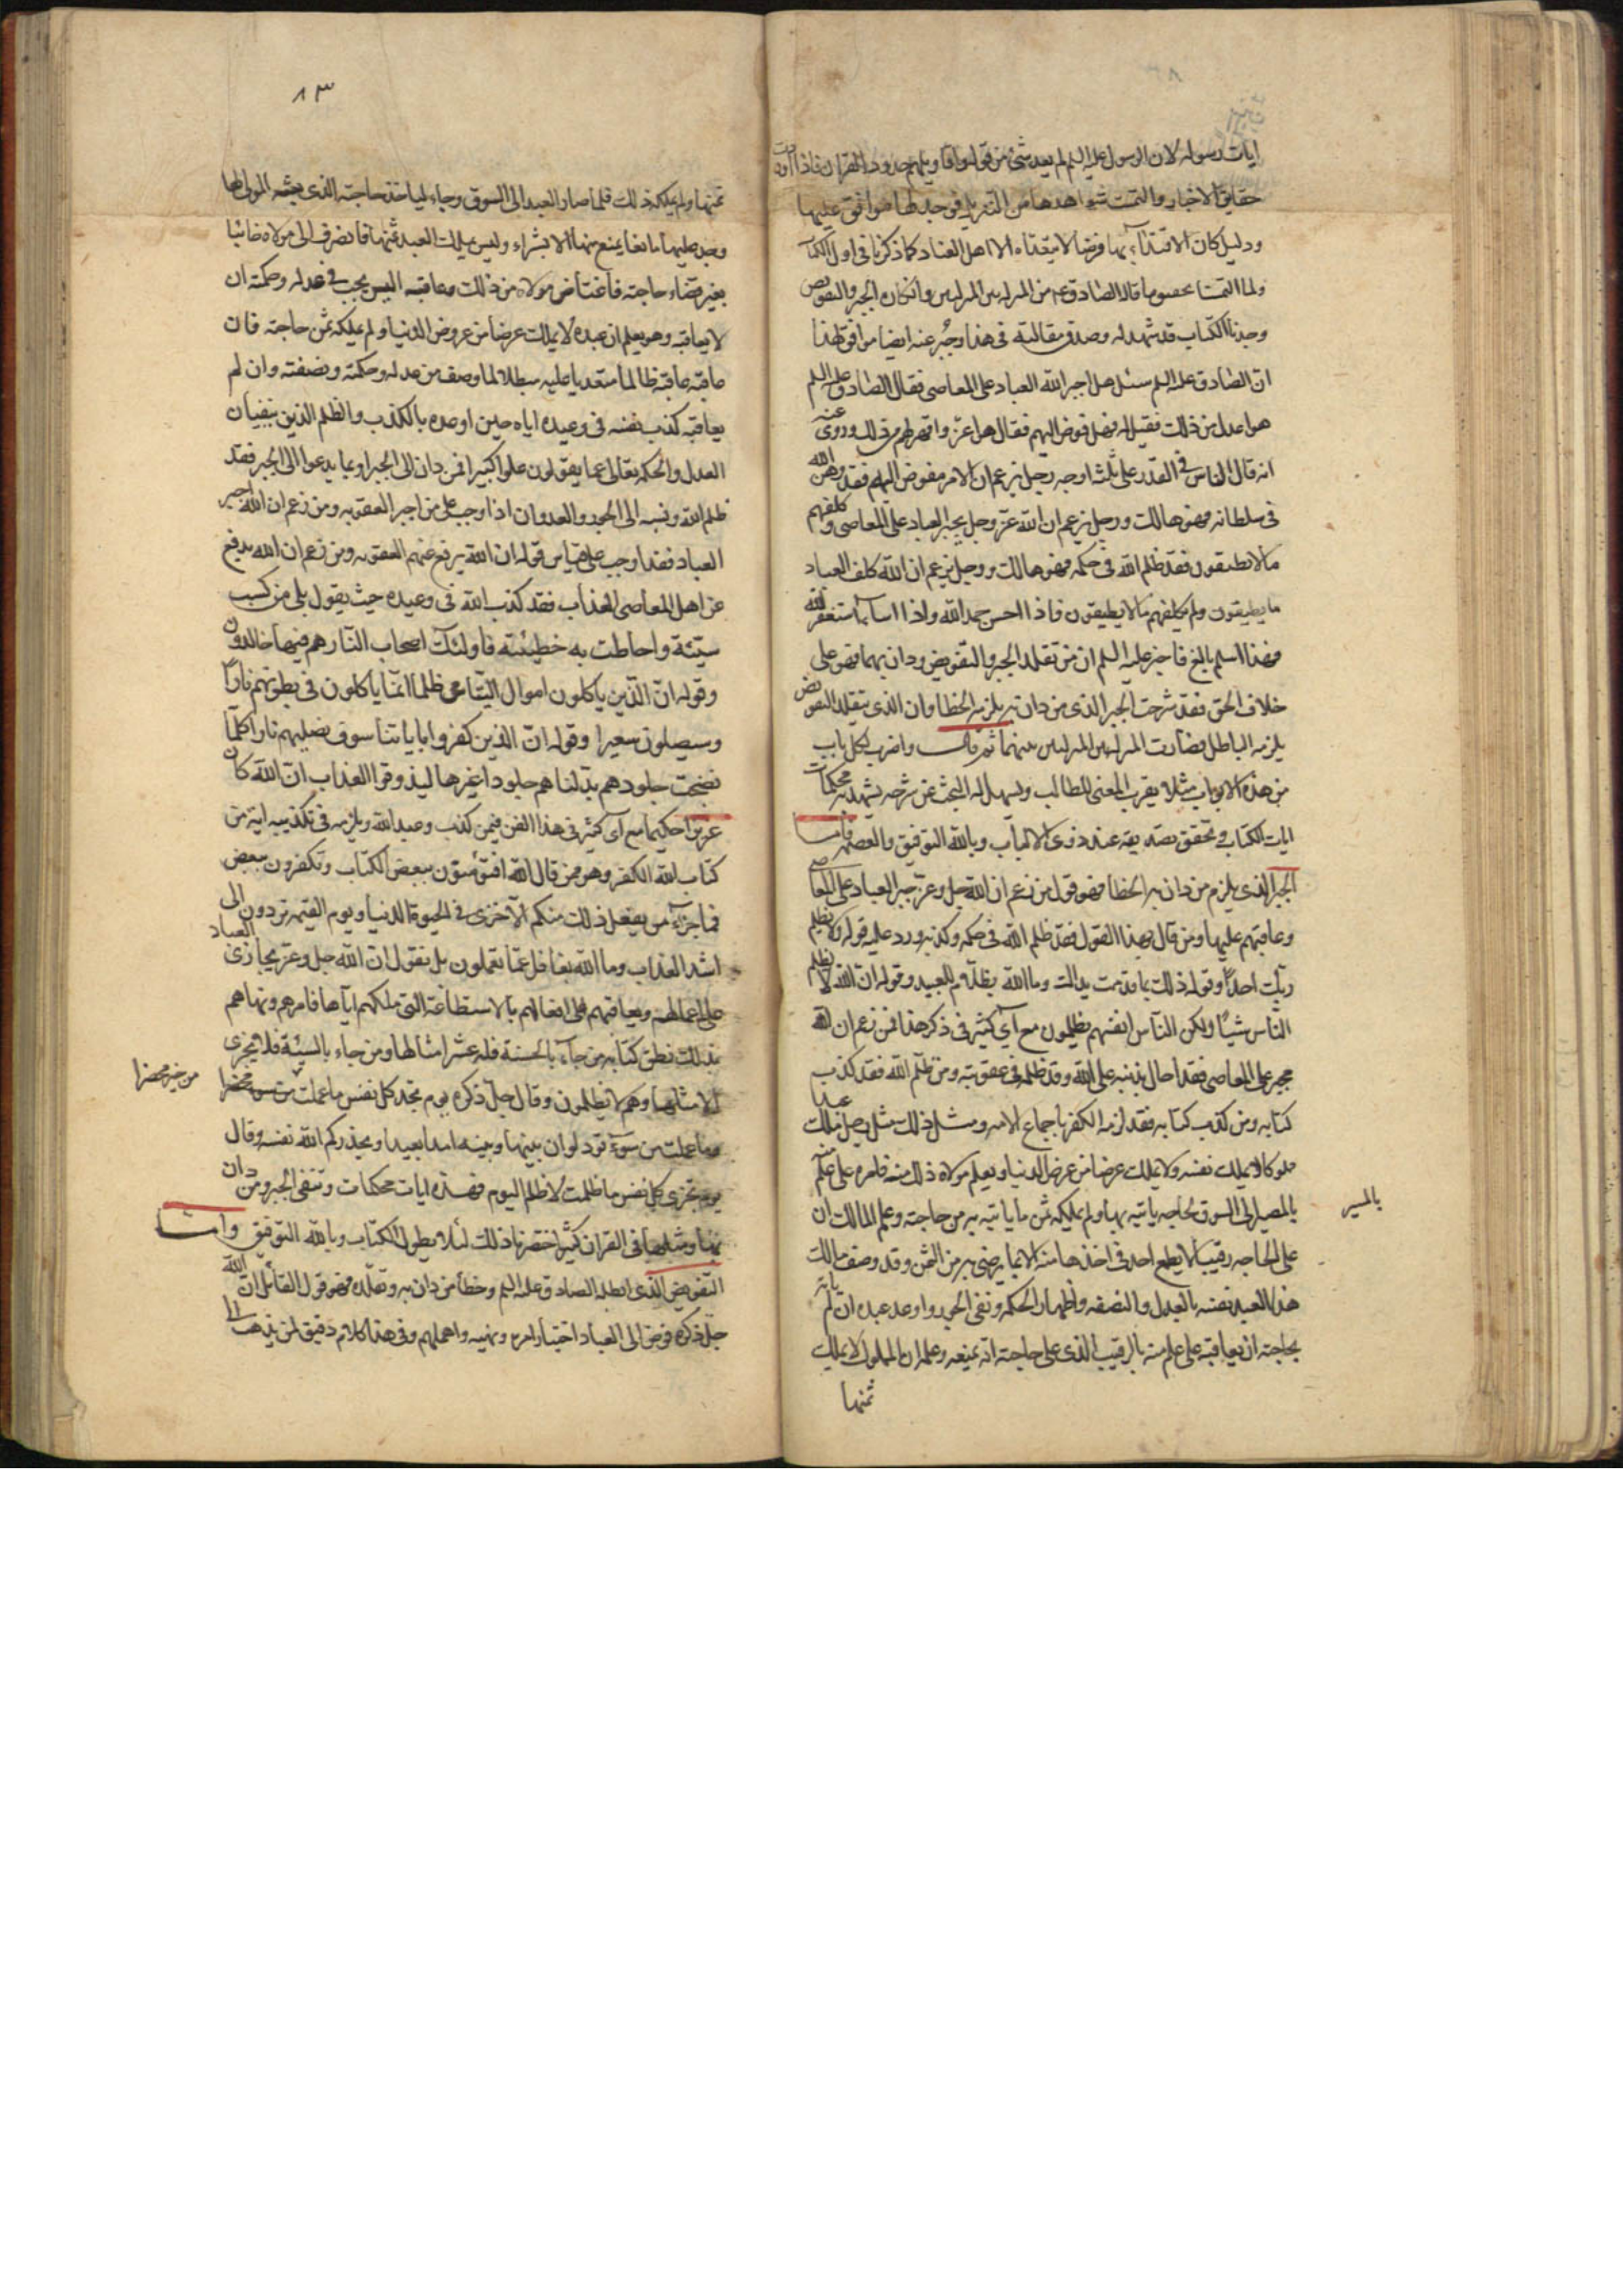 ايات رسوله لان الرسول عليه السلم لم يعد شئ من قوله واقاويلهم حدود القران فاذا وردت
حقايق الاخبار والتمست شواهدها من التنزيل فوجد لها موافق عليها
ودليل كان الاقتداء بها فرضا لا يتعداه الا اهل العناد كما ذكرنا فى اول الكتاب
ولما التمسنا تحقيق ما قاله الصادق عم من المنزلة بين المنزلتين وانكاره الجبر والتفويض
وجدنا الكتاب قد شهد له وصدق مقالته فى هذا وخبر عنه ايضا موافق لهذا
ان الصادق عليه السلم سئل هل اجبر الله العباد على المعاصى فقال الصادق عليه السلم
هو اعدل من ذلك فقيل له فهل فوض اليهم فقال هو اعز واقهر لهم من ذلك وروى عنه
انه قال الناس فى القدر على ثلثة اوجه رجل يزعم ان الامر مفوض اليهم فقد وهن الله
فى سلطانه فهو هالك ورجل يزعم ان الله عز وجل يجبر العباد على المعاصى وكلفهم
ما لا يطيقون فقد ظلم الله فى حكمه فهو هالك ورجل يزعم ان الله كلف العباد
ما يطيقون ولم يكلفهم ما لا يطيقون فاذا احسن حمد الله واذا اسآء استغفر الله
فهذا مسلم بالغ فاخبر عليه السلم ان من تقلد الجبر والتفويض ودان بهما فهو على
خلاف الحق فقد شرحت الجبر الذى من دان به يلزمه الخطا وان الذى يتقلد التفويض
يلزمه الباطل فصارت المنزلة بين المنزلتين بينهما ثم قال واضرب لكل باب
من هذه الابواب مثلا يقرب المعنى للطالب ويسهل له البحث عن شرحه يشهد به محكمات
ايات الكتاب و تحقق تصديقه عند ذوى الالباب وبالله التوفيق والعصمه فامــا
الجبر الذى يلزم من دان به الخطا فهو قول من زعم ان الله جل وعز جبر العباد على المعاصى
وعاقبهم عليها ومن قال بهذا القول فقد ظلم الله فى حكمه وكذبه ورد عليه قوله ولا يظلم
ربك احداً وقوله ذلك بما قدمت يداك وما الله بظلّام للعبيد وقوله ان الله لا يظلم
النّاس شيئًا ولكن النآس انفسهم يظلمون مع آى كثيره فى ذكر هذا فمن زعم ان الله
مجبر على المعاصى فقد احال بذنبه على الله وقد ظلمه فى عقوبته ومن ظلم الله فقد كذب
كتابه ومن كذب كتابه فقد لزمه الكفر باجماع الامه ومثل ذلك مثل رجل ملك عبدا
مملوكا لا يملك نفسه ولا يملك عرضا من عرض الدنيا ويعلم مولاه ذلك منه فامره على علم منه
بالمصير الى السوق لحاجه ياتيه بها ولم يملكه ثمن ما ياتيه به من حاجته وعلم المالك ان
بالمسير
على الحاجه رقيبا لا يطمع احد فى اخذها منه الا بما يرضى به من الثمن وقد وصف مالك
هذا العبد نفسه بالعدل والنصفه واظهار الحكمه ونفى الجور واوعد عبده ان لم ياته
بحاجته ان يعاقبه على علم منه بالرقيب الذى على حاجته انه يمنعه وعلم ان المملوك لا يملك
ثمنها
٨٣
ثمنها ولم يملكه ذلك فلما صار العبد الى السوق وجاء لياخذ حاجته الذى بعثه المولى لها
وجد عليها مانعا يمنع منها الا بشراء وليس يملك العبد ثمنها فانصرف الى مولاه خائبا
بغير قضاء حاجته فاغتاض مولاه من ذلك وعاقبه اليس يجب فى عدله وحكمته ان
لا يعاقبه وهو يعلم ان عبده لا يملك عرضا من عروض الدنيا ولم يملكه ثمن حاجته فان
عاقبه عاقبه ظالما متعديا عليه مبطلا لما وصف من عدله وحكمته ونصفته وان لم
يعاقبه كذب نفسه فى وعيده اياه حين اوعده بالكذب والظلم الذين ينفيان
العدل والحكمه تعالى عما يقولون علوا كبيرا فمن دان الى الجبر او بما يدعوا الى الجبر فقد
ظلم الله ونسبه الى الجور والعدوان اذا وجب على من اجبر العقوبه ومن زعم ان الله اجبر
العباد فقد اوجب على قياس قوله ان الله يرفع عنهم العقوبه ومن زعم ان الله يدفع
عن اهل المعاصى العذاب فقد كذب الله فى وعيده حيث يقول بلى من كسب
سيّئة واحاطت به خطيئته فاولئك اصحاب النّار هم فيها خالدون
وقوله انّ الّذين ياكلون اموال اليتامى ظلما انّما ياكلون فى بطونهم نارًا
وسيصلون سعيرا وقوله انّ الذين كفروا باياتنا سوف نصليهم نارا كلّما
نضجت جلودهم بدّلناهم جلودا غيرها ليذوقوا العذاب انّ الله كان
عزيزا حكيما مع آى كثيره فى هذا الفن فمن كذب وعيد الله ويلزمه فى تكذيبه اية من
كتاب الله الكفر وهو ممن قال الله افتؤمنون ببعض الكتاب وتكفرون ببعض
فما جزآء من يفعل ذلك منكم الّا خزى فى الحيوة الدنيا ويوم القيمه يردون الى
اشد العذاب وما الله بغافل عمّا تعملون بل نقول ان الله جل وعز يجازى العباد
على اعمالهم ويعاقبهم على افعالهم بالاستطاعة التى ملكهم اياها فامرهم ونهاهم
بذلك نطق كتابه من جآء بالحسنة فله عشر امثالها ومن جاء بالسيئة فلا يجزى
الا مثلها وهم لا يظلمون وقال جل ذكره يوم تجد كل نفس ما عملت من سوء محضرا
من خير محضرا
وما عملت من سوء تود لو ان بينها وبينه امدا بعيدا ويحذركم الله نفسه وقال
يوم تجزى كل نفس ما ظلمت لا ظلم اليوم فهذه ايات محكمات وتنفى الجبر ومن دان
به ومثلها فى القران كثير اختصرنا ذلك لئلا يطول الكتاب وبالله التوفيق وامــا
التفويض الذى ابطله الصادق عليه السلم وخطأ من دان به وتقلّده فهو قول القائل ان الله
جل ذكره فوض الى العباد اختيار امره ونهيه واهملهم وفى هذا كلام دقيق لمن يذهب الى